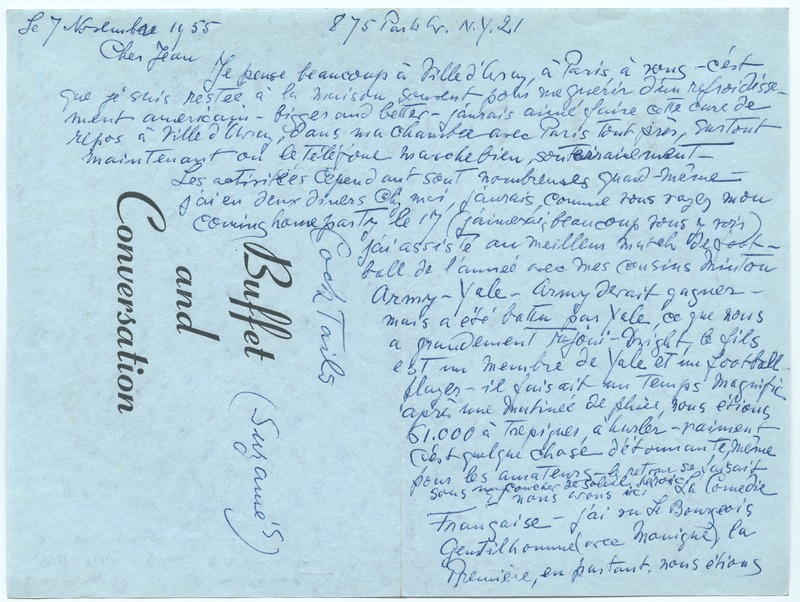 Le 7 Novembre 1955    875 Park Av. N.Y. 21
Cher Jean
Je pense beaucoup à Ville d'Avray, à Paris, à vous - c'est
que je suis restée à la maison souvent pour me guérir d'un refroidisse-
ment americain - bigger and better - j'aurais aimé faire cette cure de
repos à Ville d'Avray, dans ma chambre avec Paris tout près, surtout
maintenant où le téléphone marche bien, souterrainement -
Les activités cependant sont nombreuses quand-même -
j'ai eu deux diners chez moi, j'aurais comme vous voyez mon
coming home party le 17 (j'aimerais beaucoup vous y voir)
j'ai assisté au meilleur match de foot-
ball de l'année avec mes cousins Minton
Army - Yale - Army devait gagner -
mais a été battu par Yale ce que nous
a grandement réjoui - Dwight le fils
est un membre de Yale et un football
player - il faisait un temps magnific
après une matinée de pluie, nous étions
61.000 à trepigner, à hurler - vraiment
c'est quelque chose d'étonnante, même
pour les amateurs - le retour se faisait
sous un coucher de soleil
nous avons ici La Comédie
Française - j'ai vu Le Bourgeois
Gentilhomme (avec Monique) la
Première, en partant. nous étions
Cock Tails
Buffet
and
Conversation
(Suzanne's)